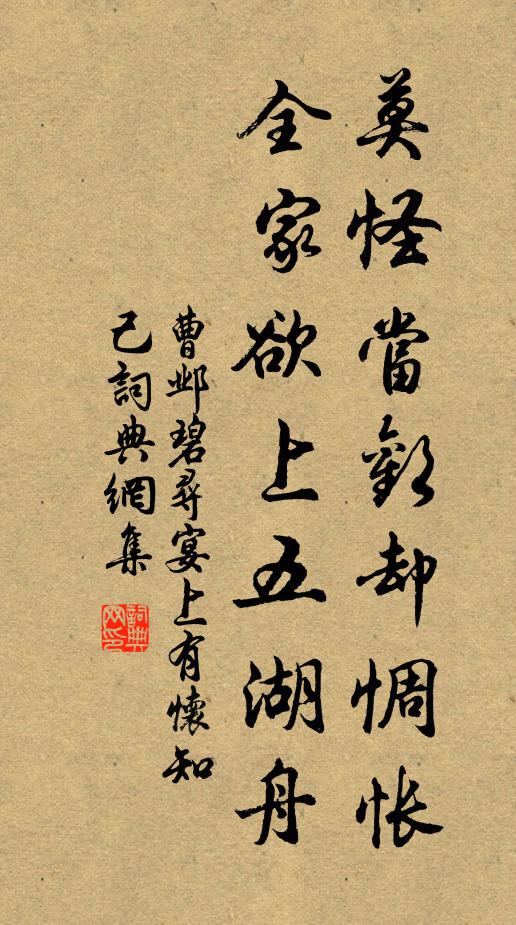 莫怪當歡却惆悵
全家欲上五湖舟
曹鄴碧尋宴上有懷知
己詞典網集